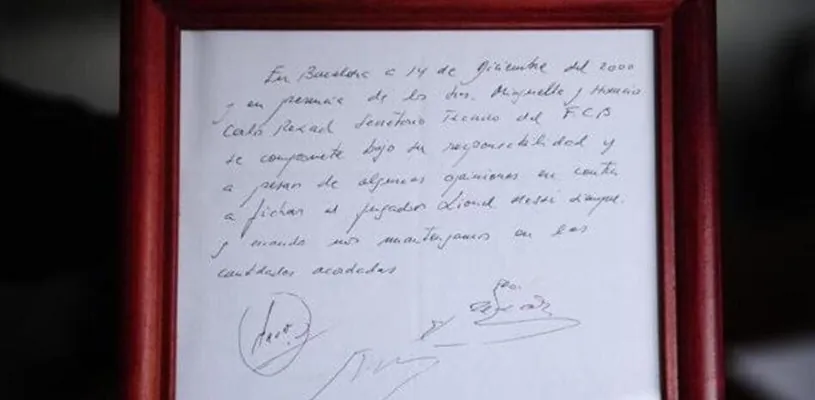 En Barcelona a 14 de Diciembre del 2000
y en presencia de los Sres. Minguella y Horacio
Carlos Rexach Secretario Técnico del F.C.B
se compromete bajo su responsabilidad y
a pesar de algunas opiniones en contra
a fichar al jugador Lionel Messi siempre
y cuando nos mantengamos en las
cantidades acordadas